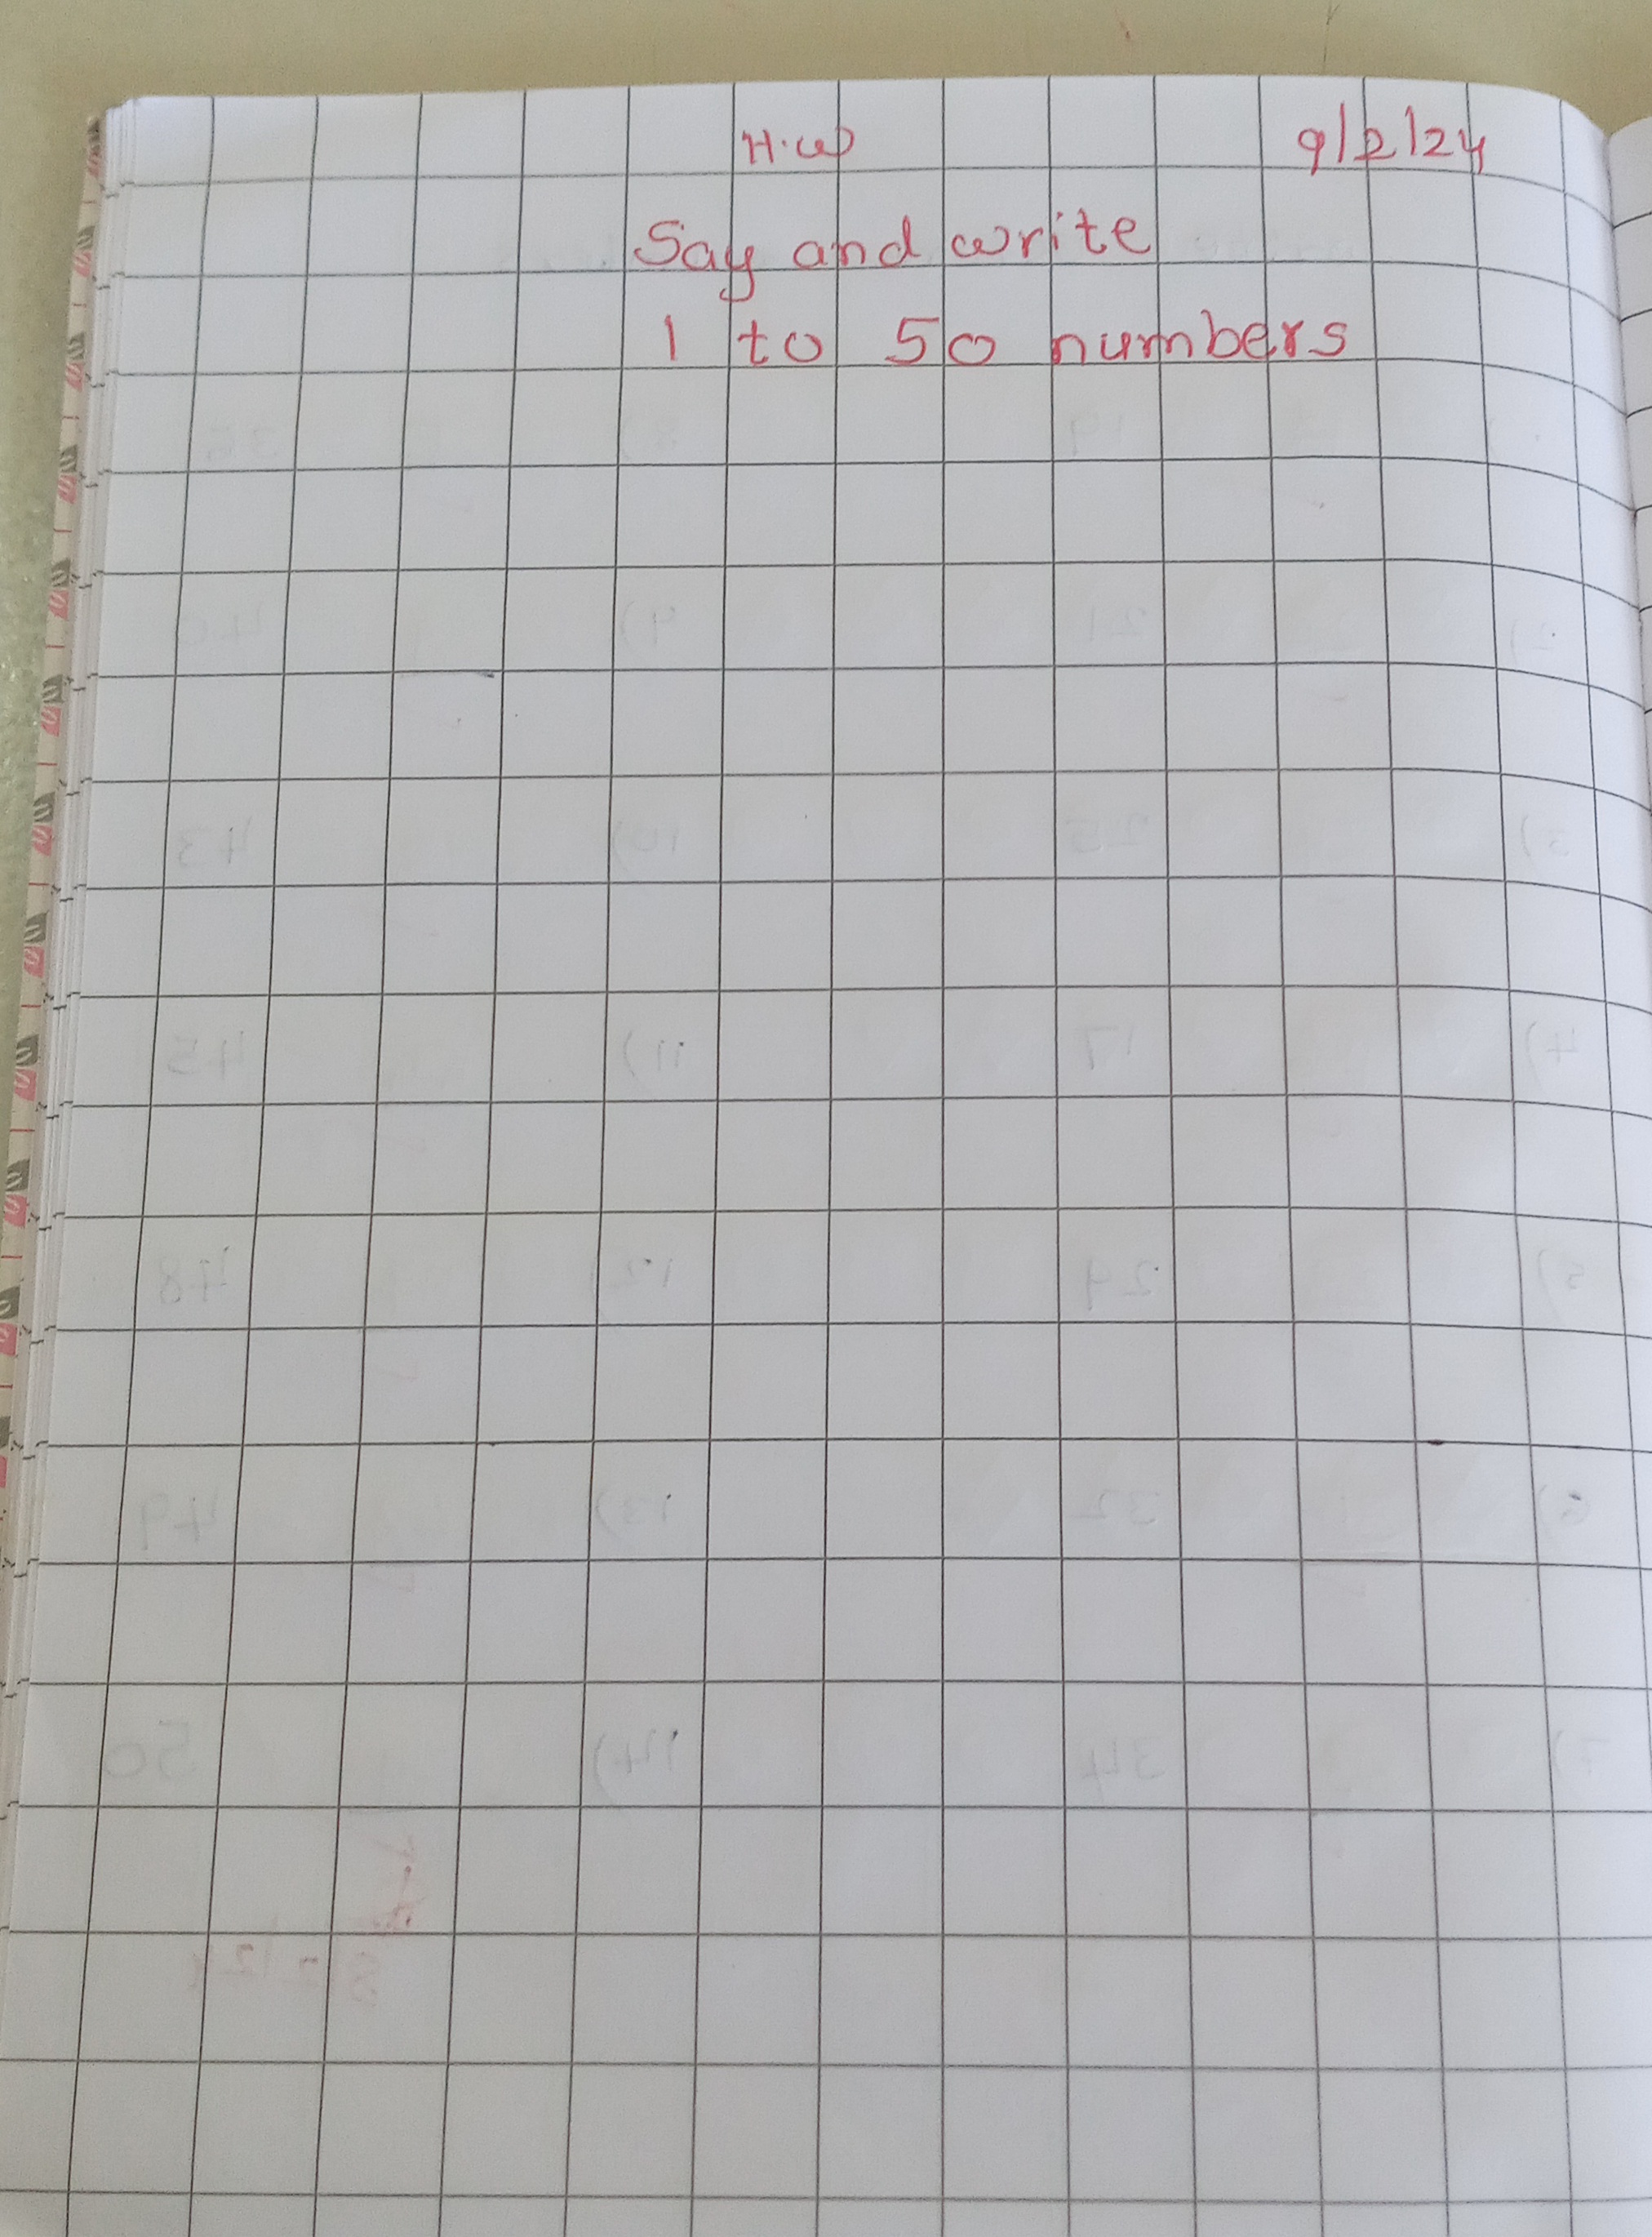 H.w 9/2/24
Say and write
1 to 50 numbers